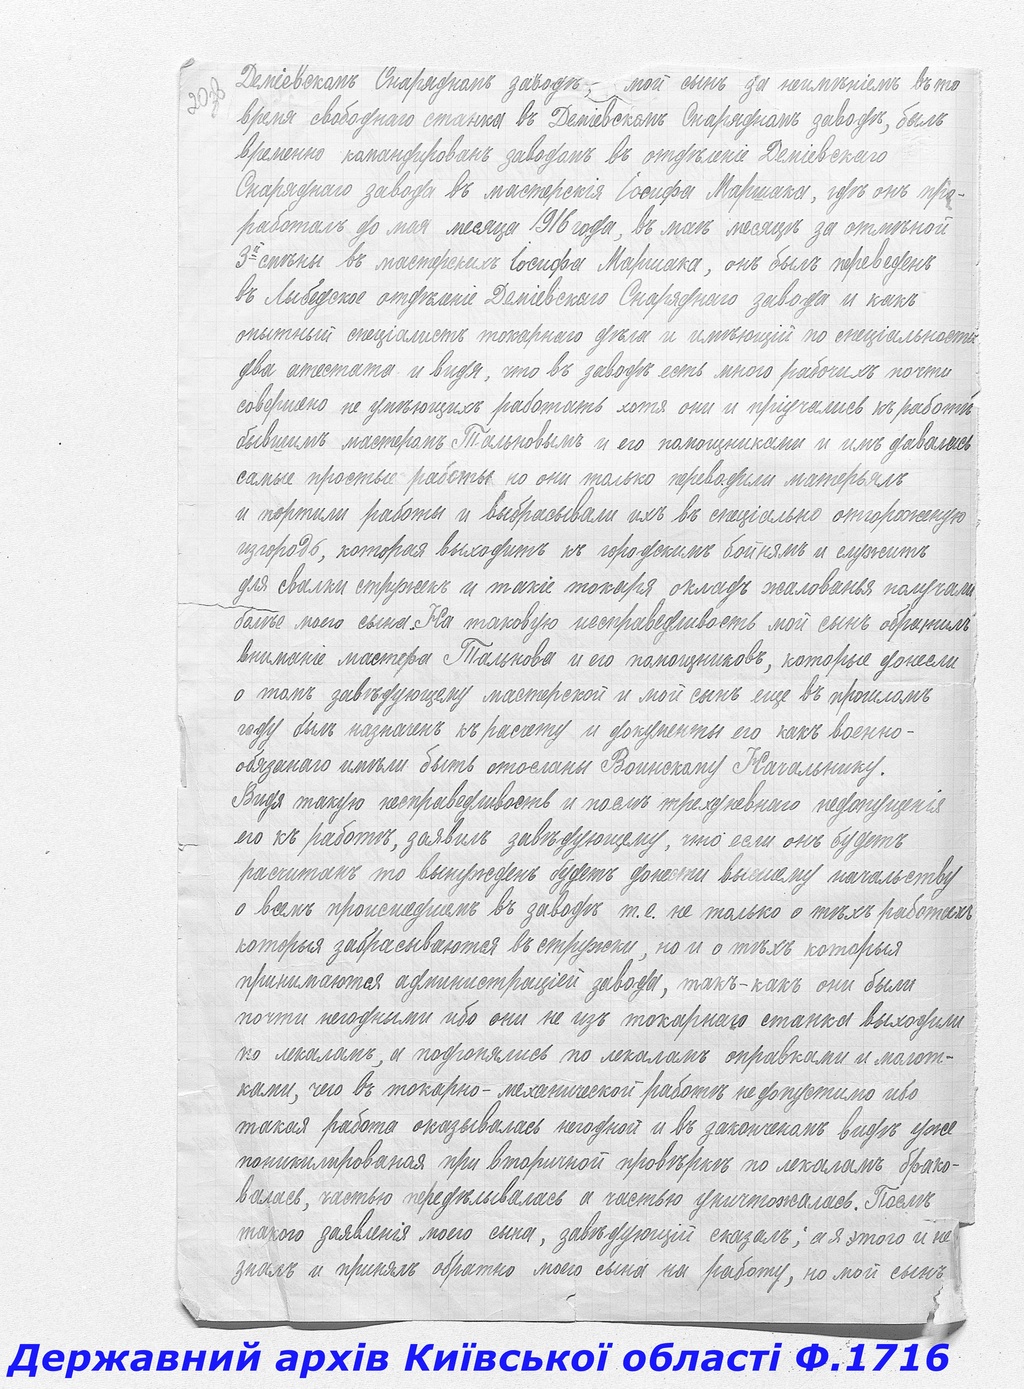 20об
Деміевскомъ Снарядномъ заводѣ, мой сынъ за неимѣніемъ въ то
время свободнаго станка въ Деміевскомъ Снарядномъ заводѣ, былъ
временно командированъ заводомъ въ отдѣленіе Деміевскаго
Снаряднаго завода въ мастерскія Іосифа Маршака, гдѣ онъ про-
работалъ до мая месяца 1916 года, въ маѣ месяцѣ за отмѣной
3й смѣны въ мастерскихъ Іосифа Маршака, онъ былъ переведенъ
въ Лыбедское отдѣленіе Деміевскаго Снаряднаго завода и какъ
опытный спеціалистъ токарнаго дѣла и имѣющій по спеціальности
два атестата и видя, что въ заводѣ есть много рабочихъ почти
совершено не умѣющихъ работать хотя они и пріучались къ работѣ
бывшимъ мастеромъ Тальновымъ и его помощниками и имъ давалась
самые простые работы но они только переводили матерьялъ
и портили работы и выбрасывали ихъ въ спеціально отгороженую
изгородь, которая выходитъ къ городскимъ бойнямъ и служитъ
для свалки стружекъ и такіе токаря окладъ жалованья получали
болѣе моего сына. На таковую несправедливость мой сынъ обратилъ
вниманіе мастера Тальнова и его помощниковъ, которые донесли
о томъ завѣдующему мастерской и мой сынъ еще въ прошломъ
году былъ назначенъ къ расчету и документы его какъ военно-
обязанаго имѣли быть отосланы Воинскому Начальнику.
Видя такую несправедливость и послѣ трехдневнаго недопущенія
его къ работѣ, заявилъ завѣдующему, что если онъ будетъ
расчитанъ то вынужденъ будетъ донести высшему начальству
о всемъ происшедшемъ въ заводѣ т.е. не только о тѣхъ работахъ
которыя забрасываются въ стружки, но и о тѣхъ которыя
принимаются администраціей завода, такъ-какъ они были
почти негодными ибо они не изъ токарнаго станка выходили
по лекаламъ, а подгонялись по лекаламъ оправками и молот-
ками, чего въ токарно-механической работѣ недопустимо ибо
такая работа оказывалась негодной и въ законченомъ видѣ уже
поникилированая при вторичной провѣркѣ по лекаламъ брако-
валась, частью передѣлывалась а частью уничтожалась. Послѣ
такого заявленія моего сына, завѣдующій сказалъ; а я этого и не
зналъ и принялъ обратно моего сына на работу, но мой сынъ
Державний архів Київської області Ф.1716